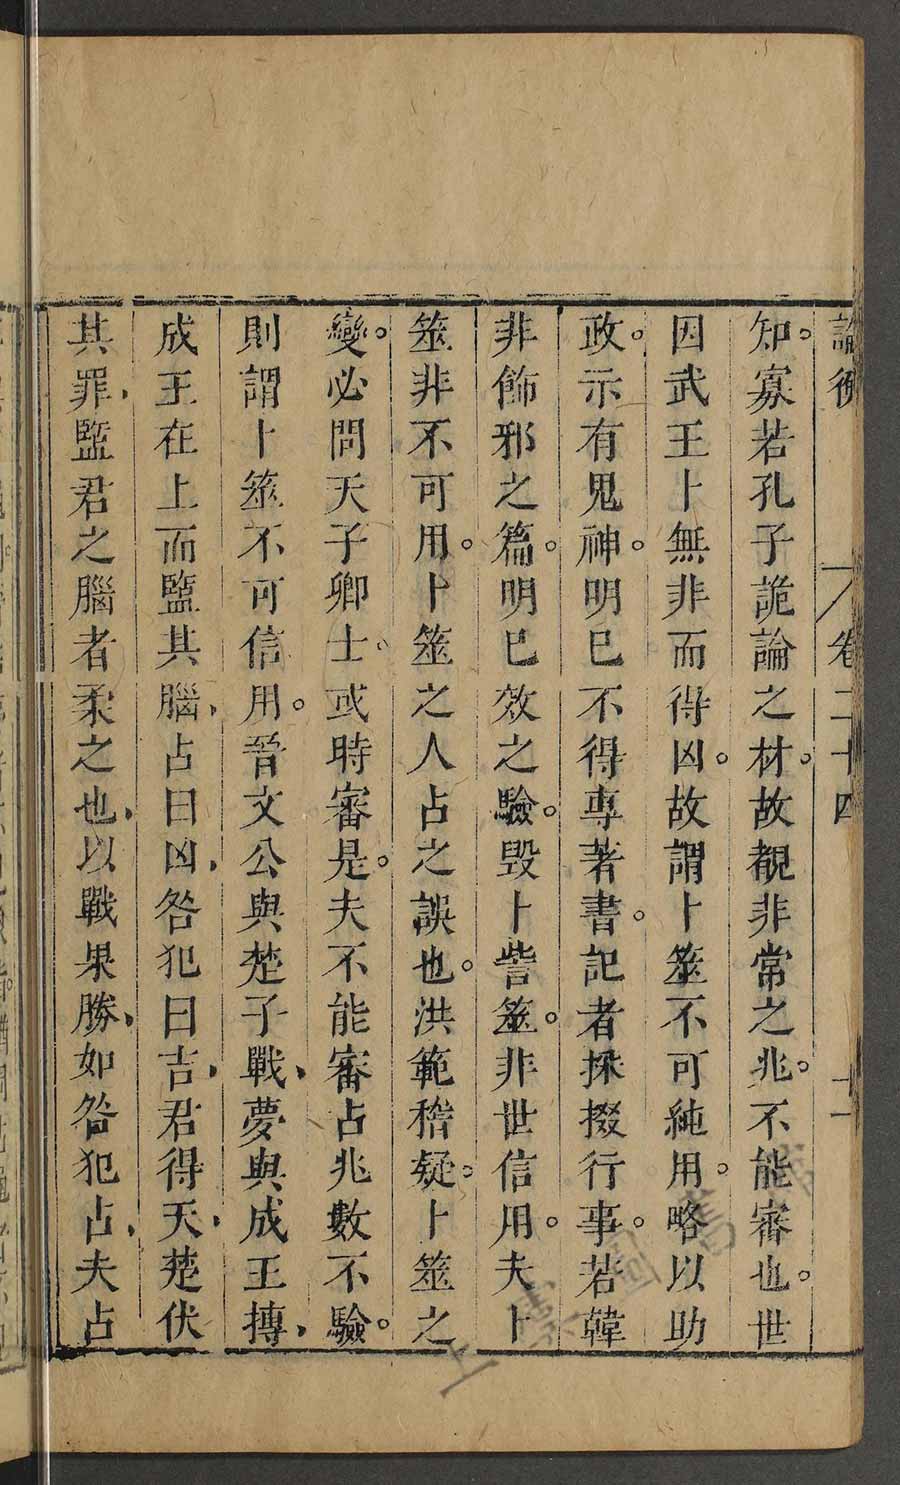 論衡 卷二十四 十一
知。寡若孔子詭論之材。故覩非常之兆。不能審也。世
因武王卜無非而得凶。故謂卜筮不可純用。略以助
政。示有鬼神。明已不得專著書。記者採掇行事。若韓
非飾邪之篇。明已效之驗。毀卜訾筮。非世信用。夫卜
筮非不可用。卜筮之人占之誤也。洪範稽疑。卜筮之
變。必問天子卿士。或時審是。夫不能審占兆數不驗。
則謂卜筮不可信用。晉文公與楚子戰、夢與成王摶、
成王在上而盬其腦、占曰凶、咎犯曰吉、君得天、楚伏
其罪、盬君之腦者柔之也、以戰果勝、如咎犯占、夫占